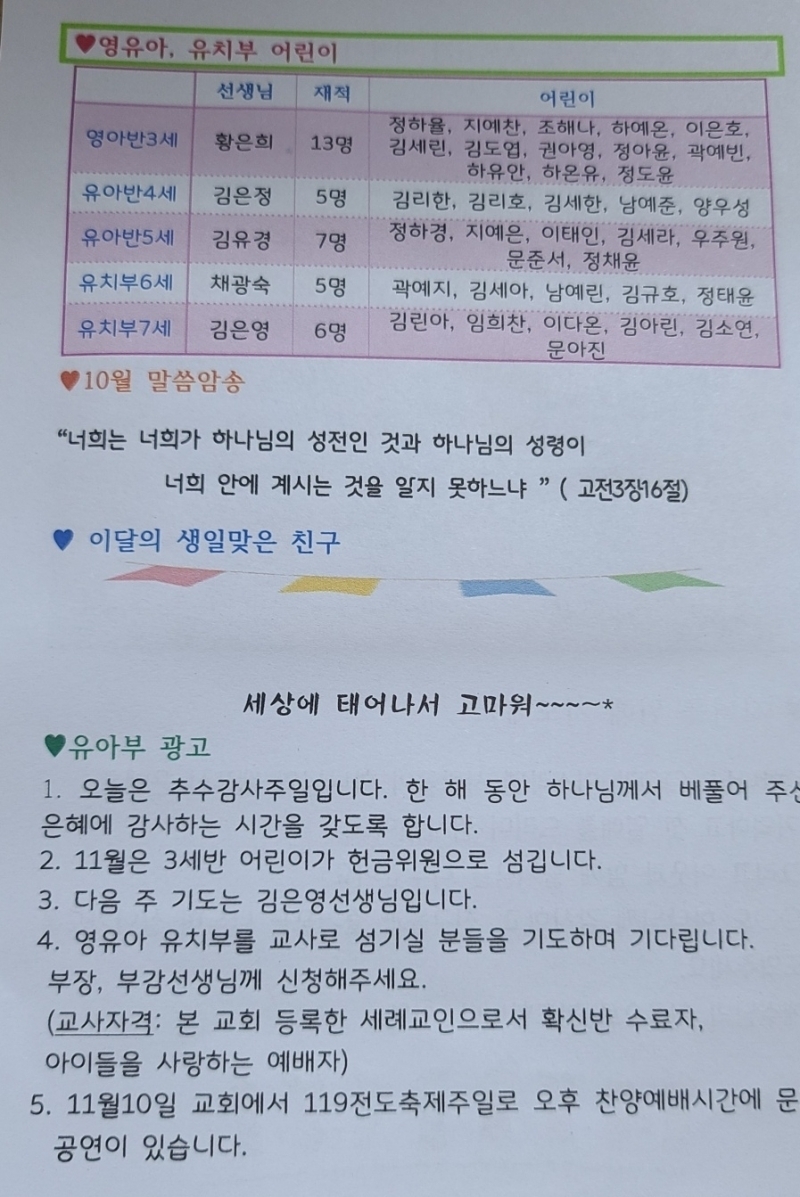 ♥영유아, 유치부 어린이
선생님 재적 어린이
영아반3세 황은희 13명 정하율, 지예찬, 조해나, 하예온, 이은호,
김세린, 김도엽, 권아영, 정아윤, 곽예빈,
하유안, 하온유, 정도윤
유아반4세 김은정 5명 김리한, 김리호, 김세한, 남예준, 양우성
유아반5세 김유경 7명 정하경, 지예은, 이태인, 김세라, 우주원,
문준서, 정채윤
유치부6세 채광숙 5명 곽예지, 김세아, 남예린, 김규호, 정태윤
유치부7세 김은영 6명 김린아, 임희찬, 이다온, 김아린, 김소연,
문아진
♥10월 말씀암송
“너희는 너희가 하나님의 성전인 것과 하나님의 성령이
너희 안에 계시는 것을 알지 못하느냐 ” ( 고전3장16절)
♥ 이달의 생일맞은 친구
세상에 태어나서 고마워~~~~*
♥유아부 광고
1. 오늘은 추수감사주일입니다. 한 해 동안 하나님께서 베풀어 주신
은혜에 감사하는 시간을 갖도록 합니다.
2. 11월은 3세반 어린이가 헌금위원으로 섬깁니다.
3. 다음 주 기도는 김은영선생님입니다.
4. 영유아 유치부를 교사로 섬기실 분들을 기도하며 기다립니다.
부장, 부감선생님께 신청해주세요.
(교사자격: 본 교회 등록한 세례교인으로서 확신반 수료자,
아이들을 사랑하는 예배자)
5. 11월10일 교회에서 119전도축제주일로 오후 찬양예배시간에 문
공연이 있습니다.